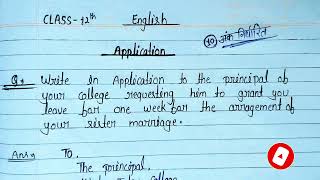 CLASS- 12th English
Application
(10) अंक निर्धारित
Q. Write an Application to the principal of
your college requesting him to grant you
leave for one week for the arragement of
your sister marriage.
Ans To,
The principal,
College